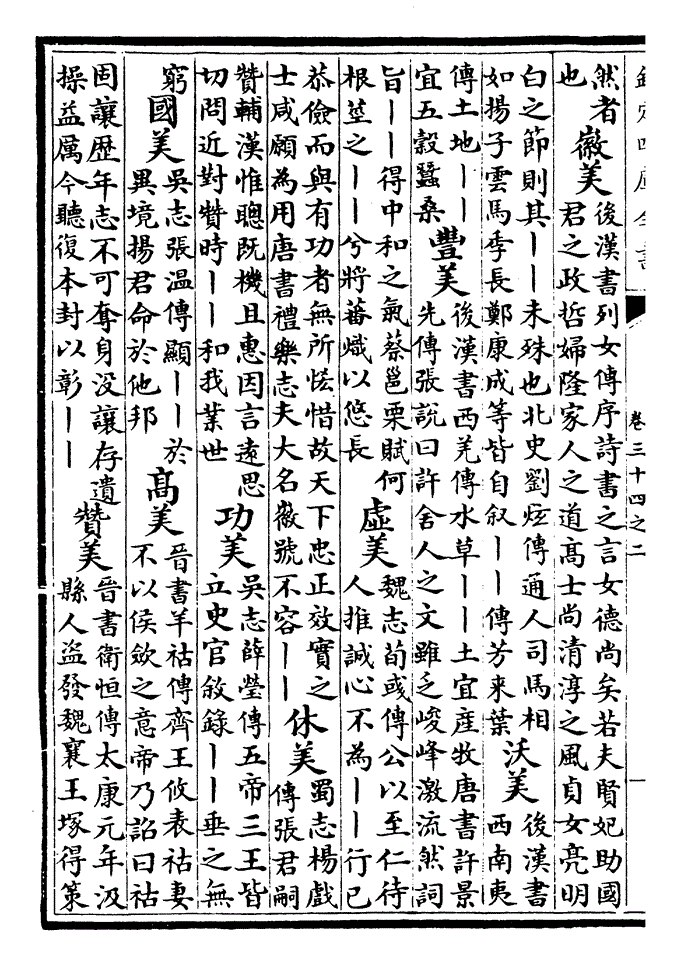 欽定四庫全書
卷三十四之二
然者
也
徽美
後漢書列女傳序詩書之言女德尚矣若夫賢妃助國
君之政哲婦隆家人之道高士尚清淳之風貞女亮明
白之節則其——未殊也北史劉炫傳通人司馬相
如揚子雲馬季長鄭康成等皆自叙——傳芳來葉
沃美
後漢書
西南夷
傳土地——
宜五穀蠶桑
豐美
後漢書西羌傳水草——土宜産牧唐書許景
先傳張說曰許舍人之文雖乏峻峰激流然詞
旨——得中和之氣蔡邕栗賦何
根莖之——兮將蕃熾以悠長
虛美
魏志荀彧傳公以至仁待
人推誠心不為——行已
恭儉而與有功者無所恡惜故天下忠正效實之
士咸願為用唐書禮樂志夫大名徽號不容——
休美
蜀志楊戲
傳張君嗣
贊輔漢惟聰既機且惠因言遠思
切問近對贊時——和我業世
功美
吳志薛瑩傳五帝三王皆
立史官敘錄——垂之無
窮
國美
吳志張温傳顯——於
異境揚君命於他邦
高美
晉書羊祜傳齊王攸表祜妻
不以侯斂之意帝乃詔曰祜
固讓歴年志不可奪身沒讓存遺
操益厲今聽復本封以彰——
贊美
晉書衛恒傳太康元年汲
縣人盜發魏襄王塚得策